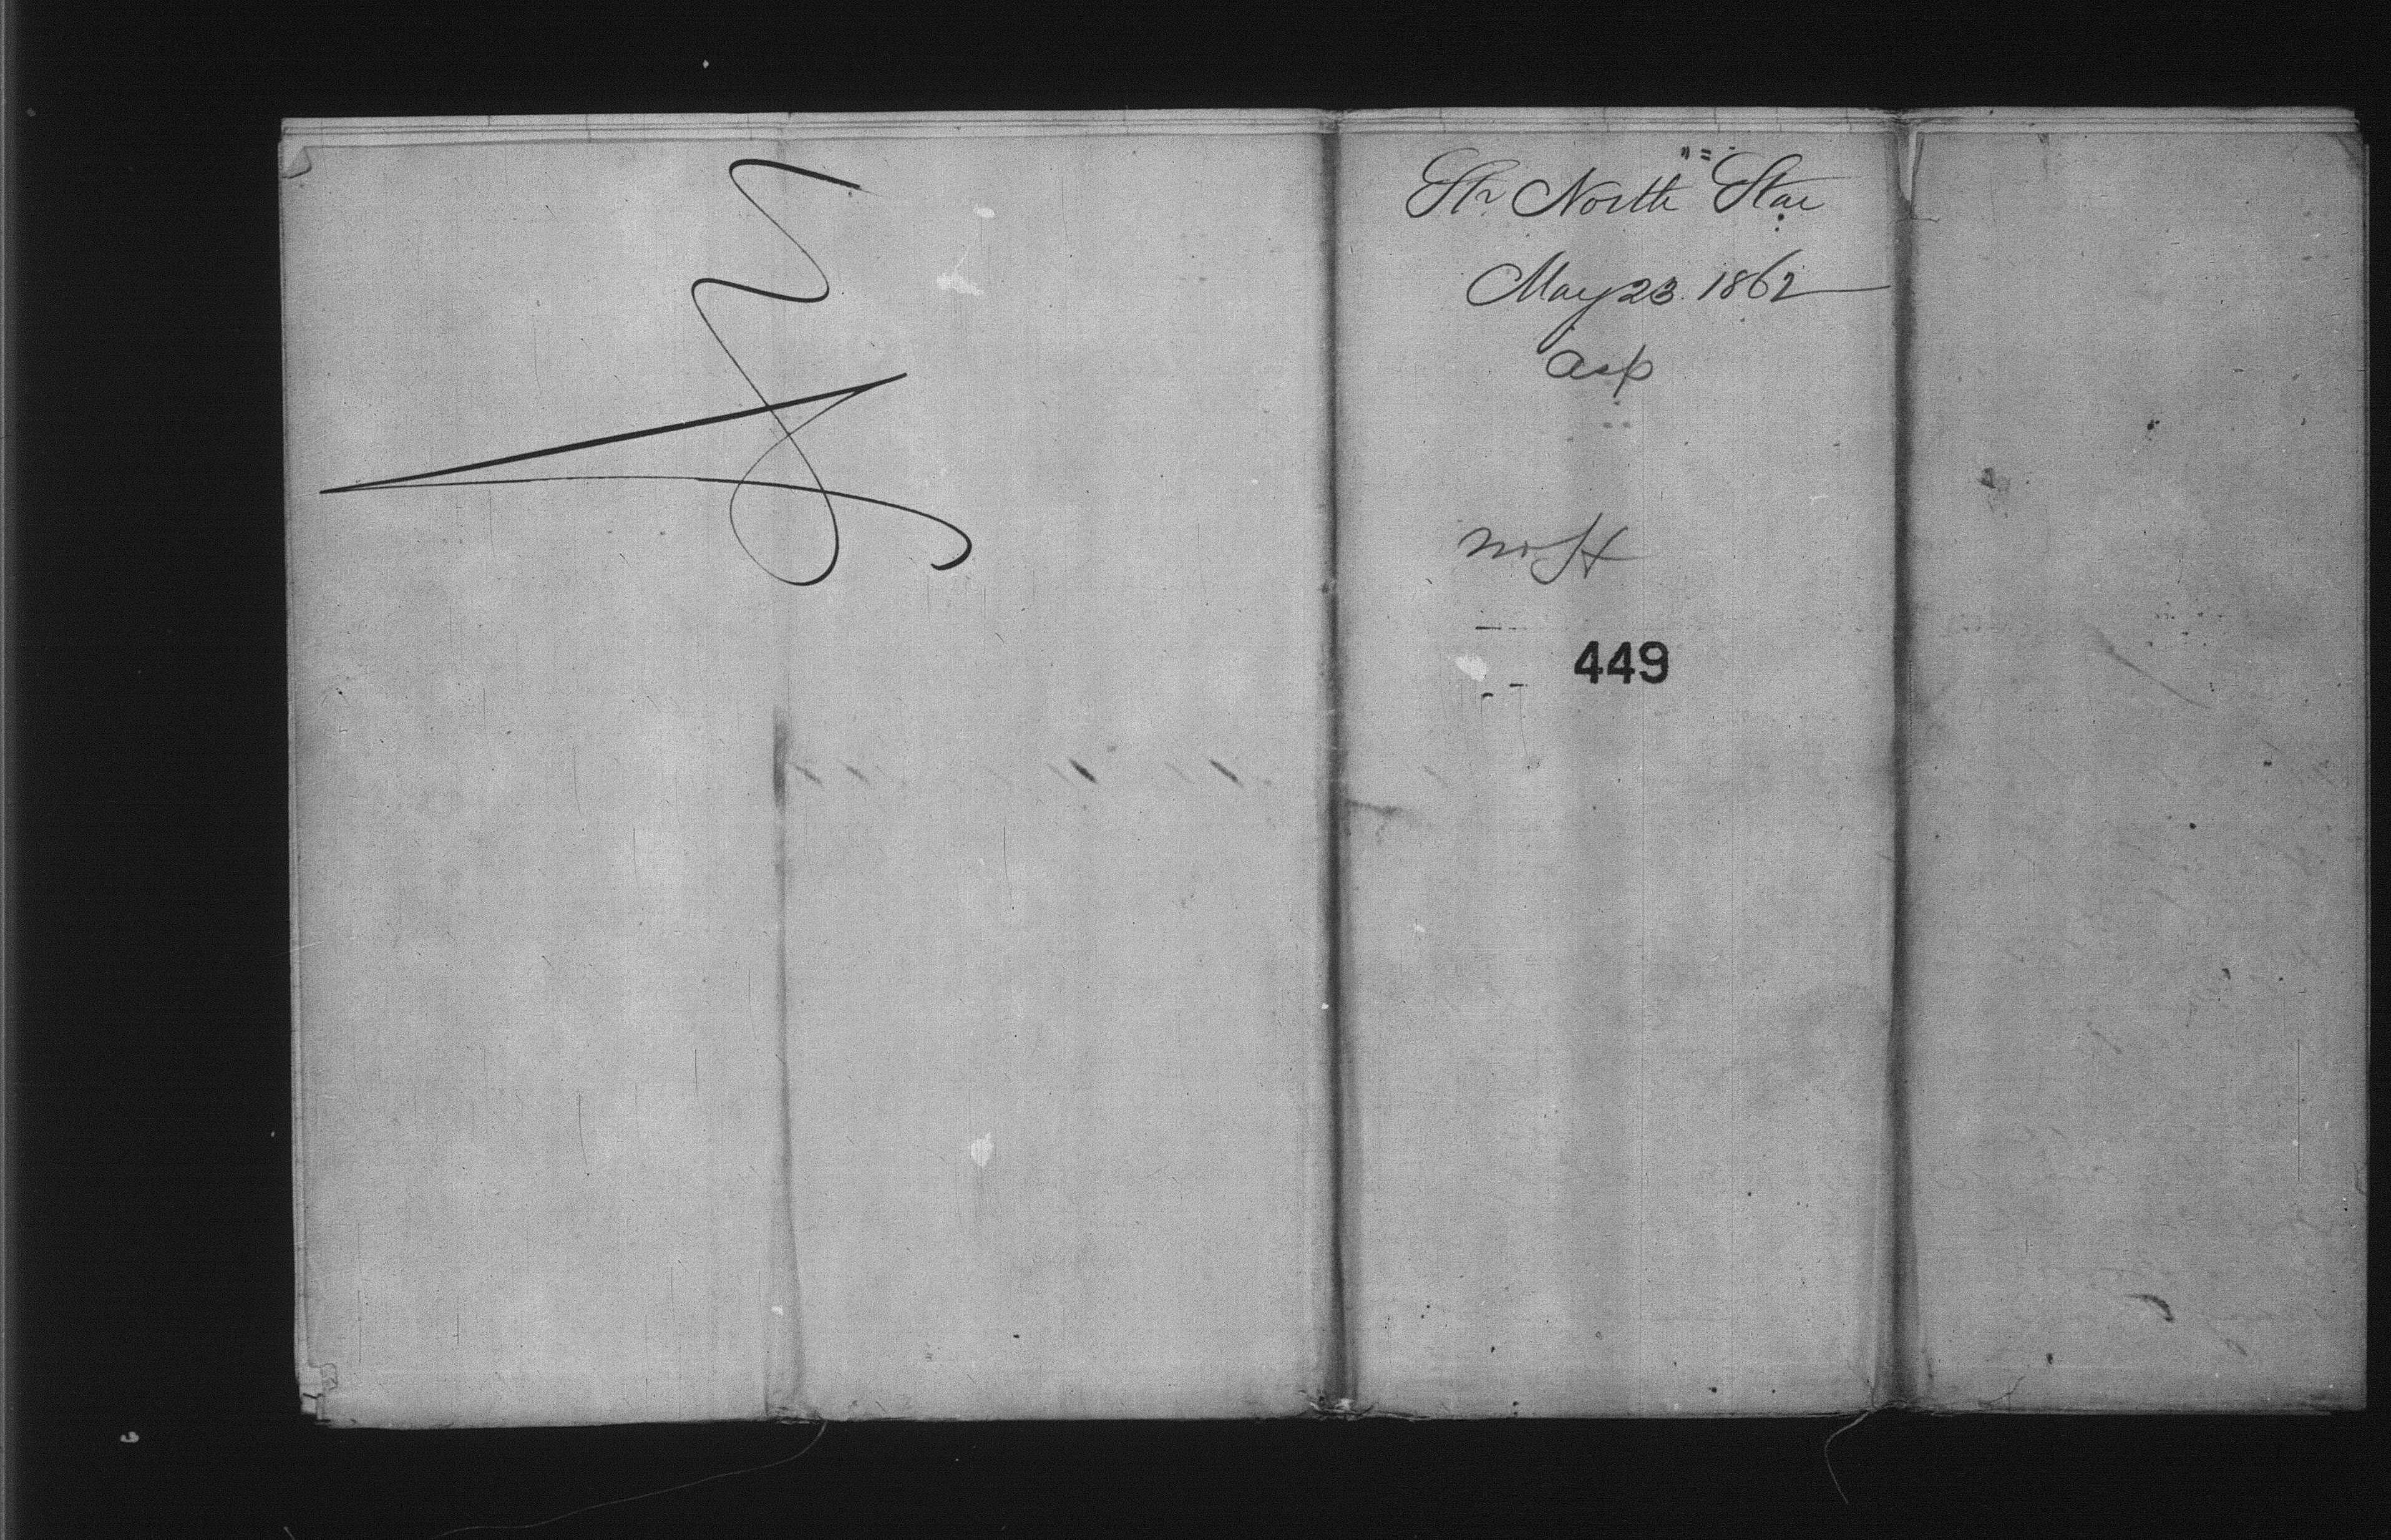 Str North Star
May 23. 1862
asp
449